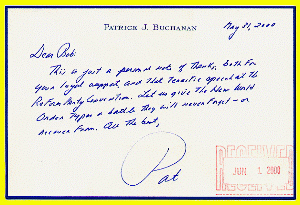 PATRICK J. BUCHANAN
May 31, 2000
Dear Bob:
This is just a personal note of thanks, both for
your loyal support, and that terrific speech at the
Reform Party Convention. Let us give the New World
Order types a battle they will never forget — or
recover from. All the best,
Pat
RECEIVED
JUN 1 2000